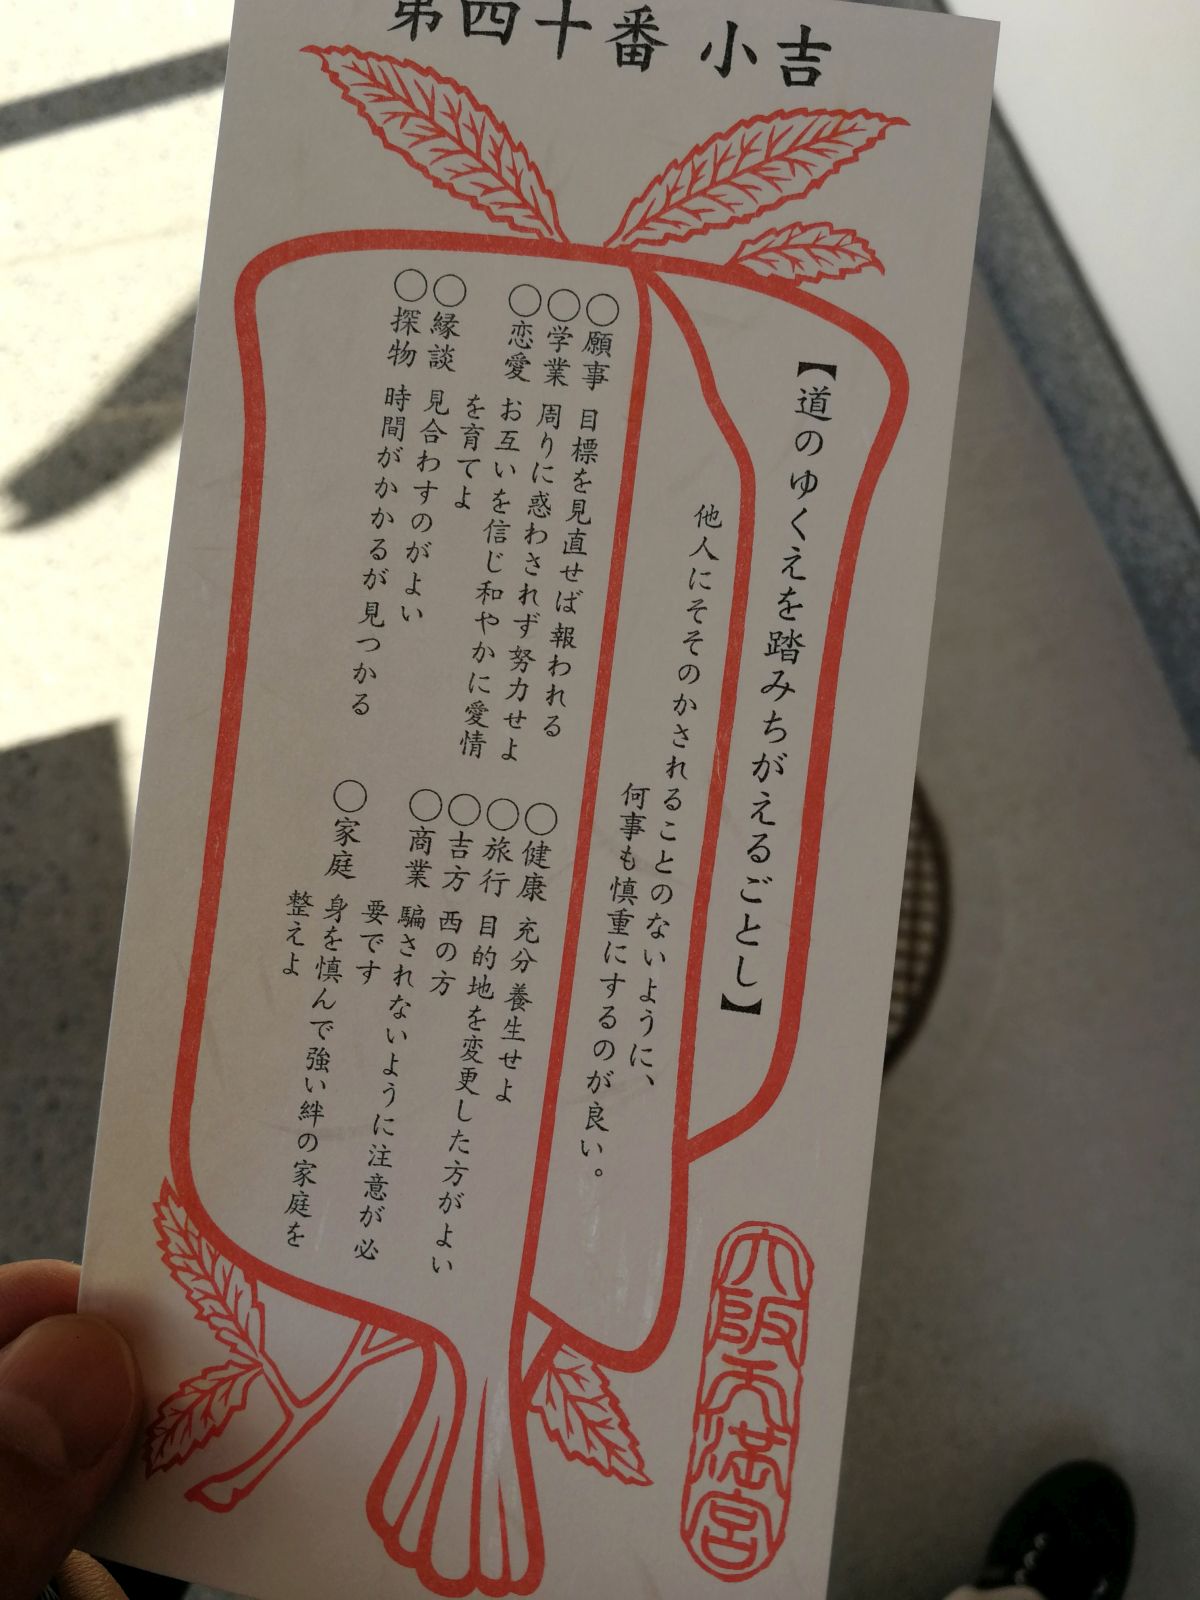 第四十番 小吉
【道のゆくえを踏みちがえるごとし】
他人にそそのかされることのないように、
何事も慎重にするのが良い。
○願事 目標を見直せば報われる
○学業 周りに惑わされず努力せよ
○恋愛 お互いを信じ和やかに愛情
を育てよ
○縁談 見合わすのがよい
○探物 時間がかかるが見つかる
○健康 充分養生せよ
○旅行 目的地を変更した方がよい
○吉方 西の方
○商業 騙されないように注意が必
要です
○家庭 身を慎んで強い絆の家庭を
整えよ
大阪天満宮